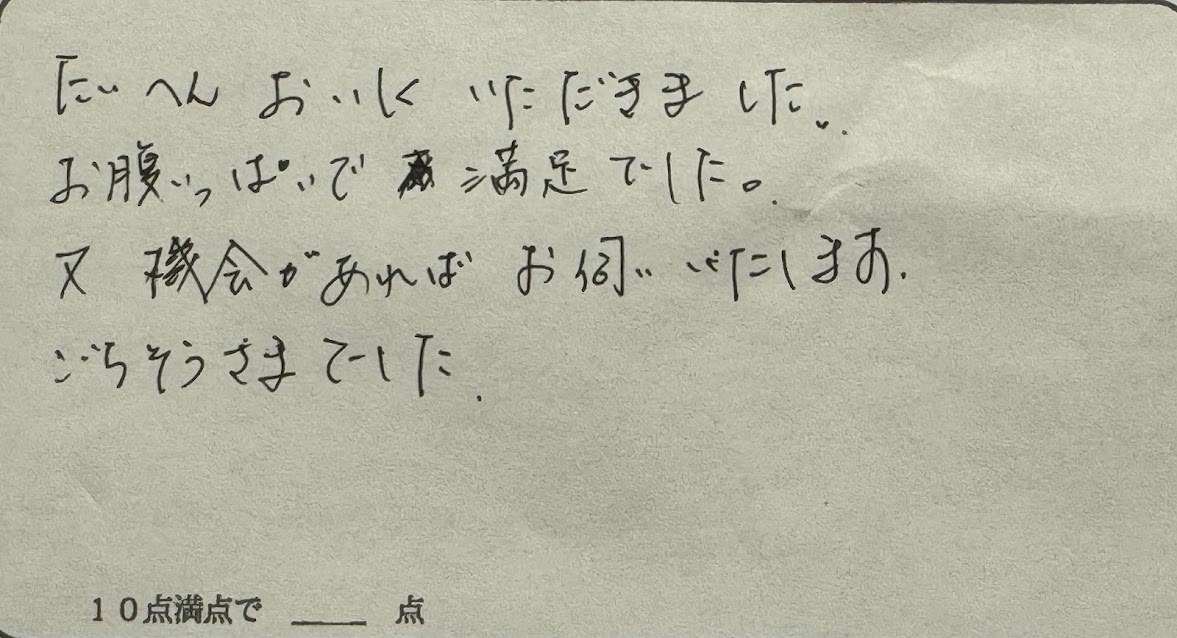 たいへん おいしく いただきました。
お腹いっぱいで 満足でした。
又 機会があれば お伺いいたします。
ごちそうさまでした.
10点満点で ____ 点